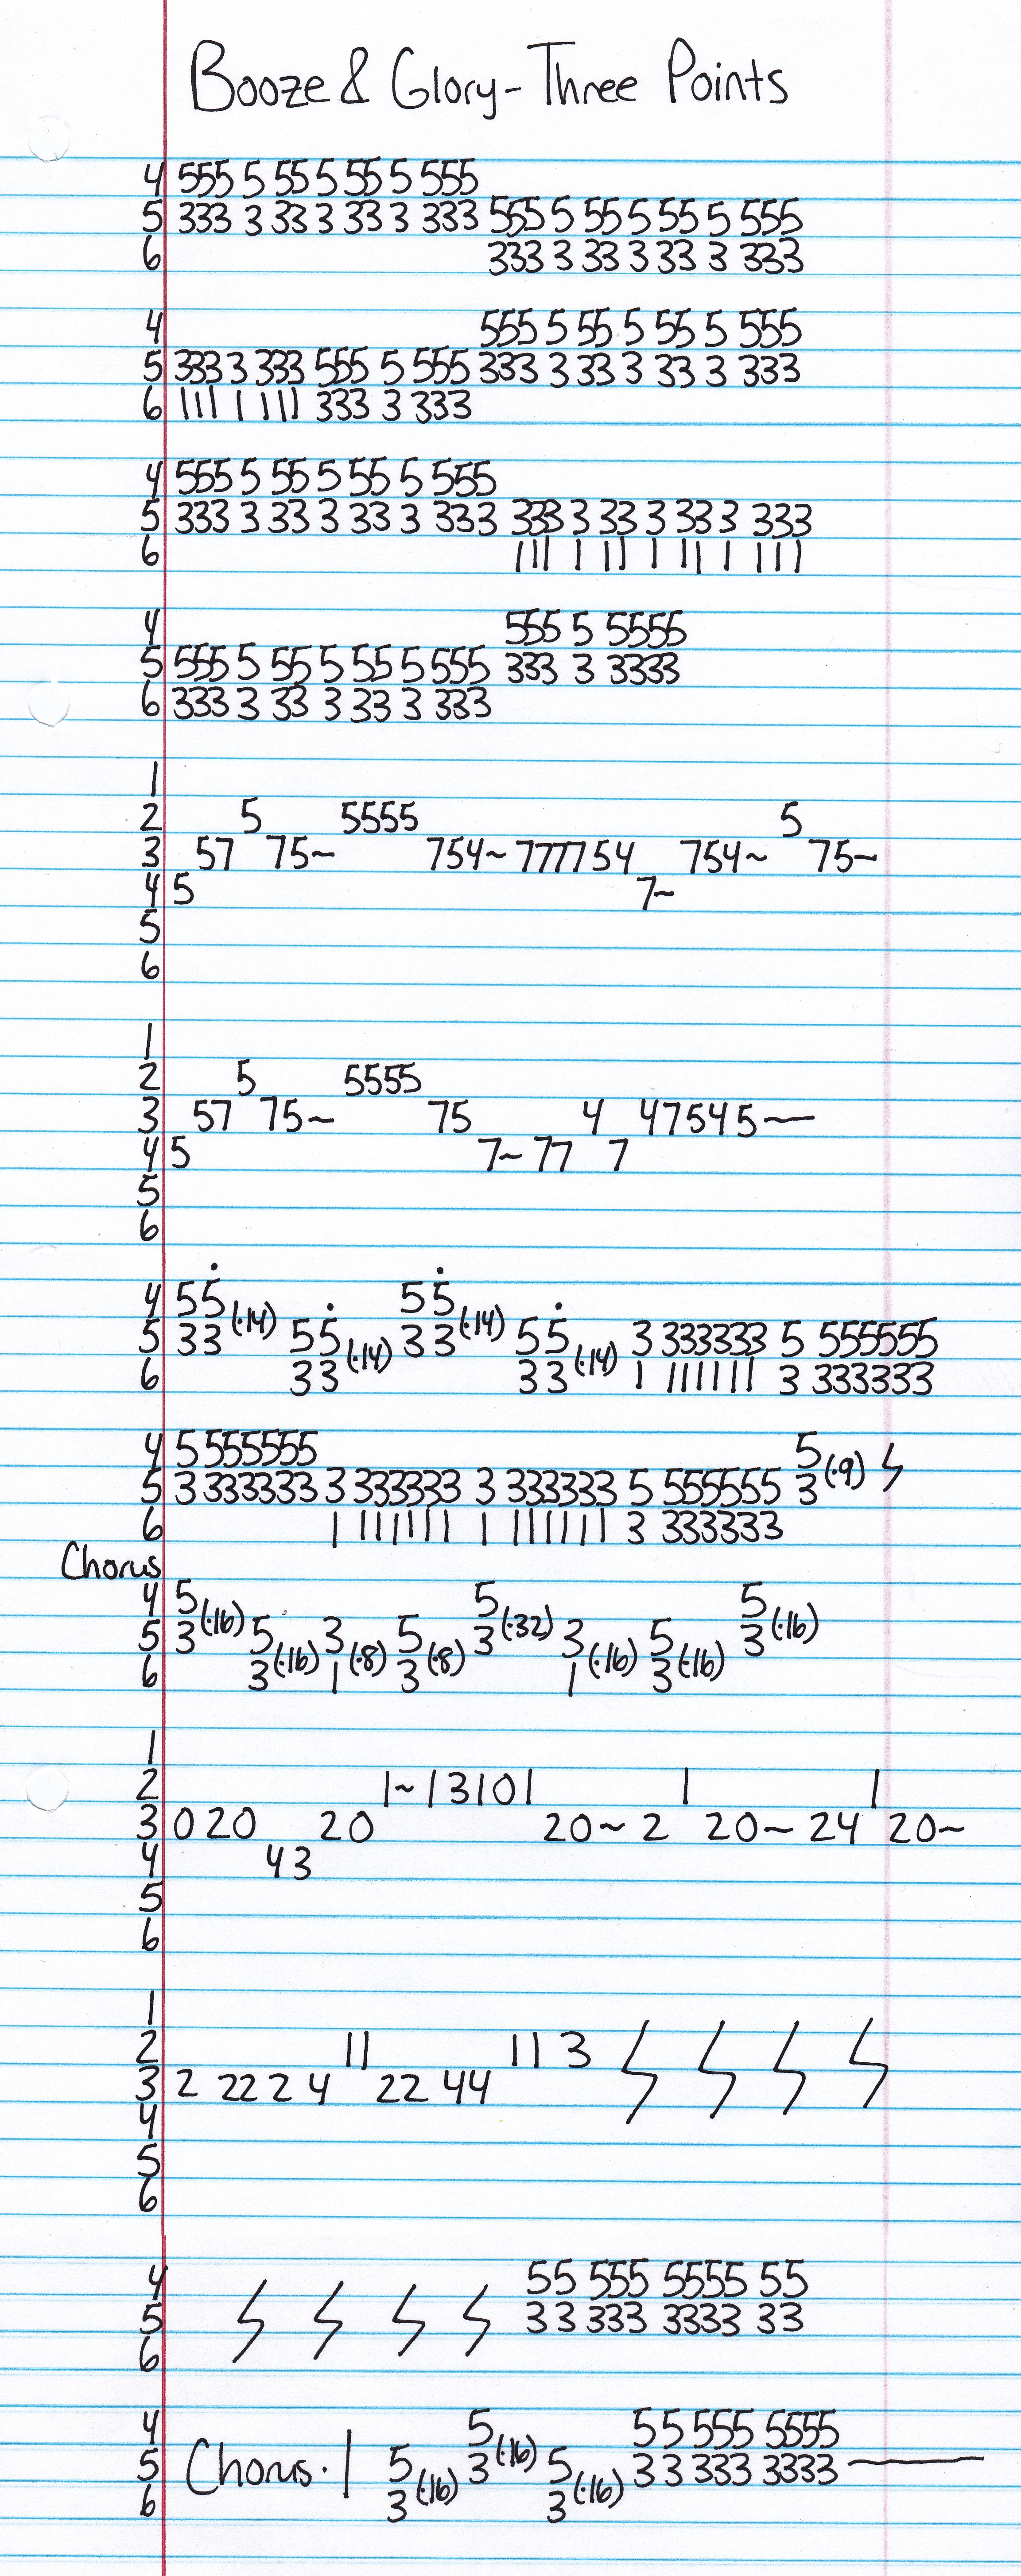 Booze & Glory - Three Points
4 555 5 55 5 55 5 555
5 333 3 33 3 33 3 333 555 5 55 5 55 5 555
6 333 3 33 3 33 3 333
4 555 5 55 5 55 5 555
5 333 3 333 555 5 555 333 3 33 3 33 3 333
6 111 1 111 333 3 333
4 555 5 55 5 55 5 555
5 333 3 33 3 33 3 333 333 3 33 3 33 3 333
6 111 1 11 1 11 1 111
4 555 5 5555
5 555 5 55 5 55 5 555 333 3 3333
6 333 3 33 3 33 3 333
1
2 5 5555 5
3 57 75~ 754~ 777754 754~ 75~
4 5 7~
5
6
1
2 5 5555
3 57 75~ 75 4 47545—
4 5 7~ 77 7
5
6
4 55̇ (·14) 55̇ (·14)
5 33 55̇ (·14) 33 55̇ (·14) 3 333333 5 555555
6 33 33 1 111111 3 333333
4 5 555555 5
5 3 333333 3 333333 3 333333 5 555555 3 (·9)
6 1 111111 1 111111 3 333333
Chorus
4 5 (·16) 5 (·32) 5 (·16)
5 3 5 3 5 3 3 5 3
6 3 (·16) 1 (·8) 3 (·8) 1 (·16) 3 (·16)
1
2 1~13101 1 1
3 0 20 20 20~ 2 20~ 24 20~
4 43
5
6
1
2 11 11 3
3 2 22 2 4 22 44
4
5
6
4 55 555 5555 55
5 33 333 3333 33
6
4 5 55 555 5555
5 Chorus · | 5 3 (·16) 5 33 333 3333 —
6 3 (·16) 3 (·16)